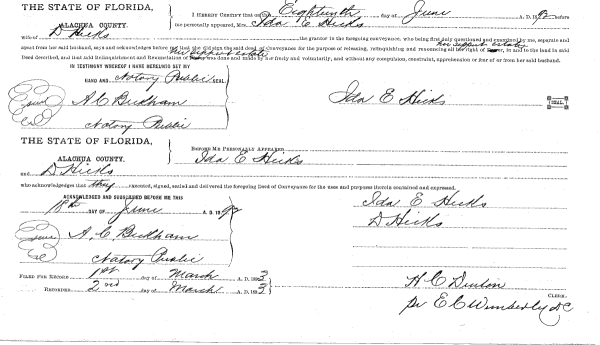 THE STATE OF FLORIDA,
ALACHUA COUNTY.
I HEREBY CERTIFY that on the Eighteenth day of June A. D. 1892 before
me personally appeared, Mrs. Ida E Hicks
wife of D Hicks the grantor in the foregoing conveyance, who being first duly questioned and examined by me, separate and
apart from her said husband, says and acknowledges before me that she did sign the said deed of Conveyance for the purpose of releasing, relinquishing and renouncing all her right of her separate estate in said
Deed described, and that said Relinquishment and Renunciation of her separate estate was done and made by her freely and voluntarily, and without any compulsion, constraint, apprehension or fear of or from her said husband.
IN TESTIMONY WHEREOF I HAVE HEREUNTO SET MY
HAND AND Notary Public SEAL
A C Ida E Hicks SEAL.
Notary Public
THE STATE OF FLORIDA,
ALACHUA COUNTY.
BEFORE ME PERSONALLY APPEARED
Ida E Hicks
and D Hicks
who acknowledges that they executed, signed, sealed and delivered the foregoing Deed of Conveyance for the uses and purposes therein contained and expressed.
ACKNOWLEDGED AND SUBSCRIBED BEFORE ME THIS
18th DAY OF June A. D. 1892
Ida E Hicks
D Hicks
A. C.
Notary Public
FILED FOR RECORD 1st day of March A. D. 1893
RECORDED 2nd day of March A. D. 1893
H C Denton CLERK.
per E C Wimberly D C